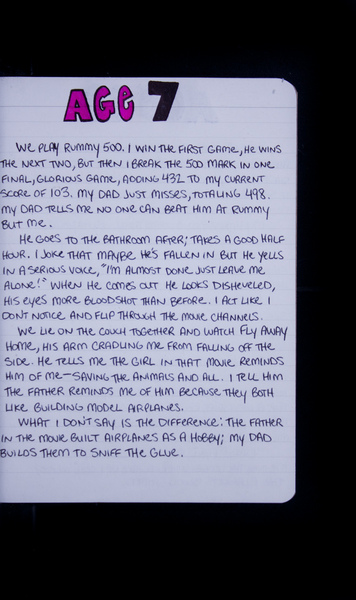 AGE 7
WE PLAY RUMMY 500. I WIN THE FIRST GAME, HE WINS
THE NEXT TWO, BUT THEN I BREAK THE 500 MARK IN ONE
FINAL, GLORIOUS GAME, ADDING 432 TO MY CURRENT
SCORE OF 103. MY DAD JUST MISSES, TOTALING 498.
MY DAD TELLS ME NO ONE CAN BEAT HIM AT RUMMY
BUT ME.
HE GOES TO THE BATHROOM AFTER; TAKES A GOOD HALF
HOUR. I JOKE THAT MAYBE HE'S FALLEN IN BUT HE YELLS
IN A SERIOUS VOICE, "I'M ALMOST DONE JUST LEAVE ME
ALONE!" WHEN HE COMES OUT HE LOOKS DISHEVELED,
HIS EYES MORE BLOODSHOT THAN BEFORE. I ACT LIKE I
DON'T NOTICE AND FLIP THROUGH THE MOVIE CHANNELS.
WE LIE ON THE COUCH TOGETHER AND WATCH FLY AWAY
HOME, HIS ARM CRADLING ME FROM FALLING OFF THE
SIDE. HE TELLS ME THE GIRL IN THAT MOVIE REMINDS
HIM OF ME—SAVING THE ANIMALS AND ALL. I TELL HIM
THE FATHER REMINDS ME OF HIM BECAUSE THEY BOTH
LIKE BUILDING MODEL AIRPLANES.
WHAT I DON'T SAY IS THE DIFFERENCE: THE FATHER
IN THE MOVIE BUILT AIRPLANES AS A HOBBY; MY DAD
BUILDS THEM TO SNIFF THE GLUE.